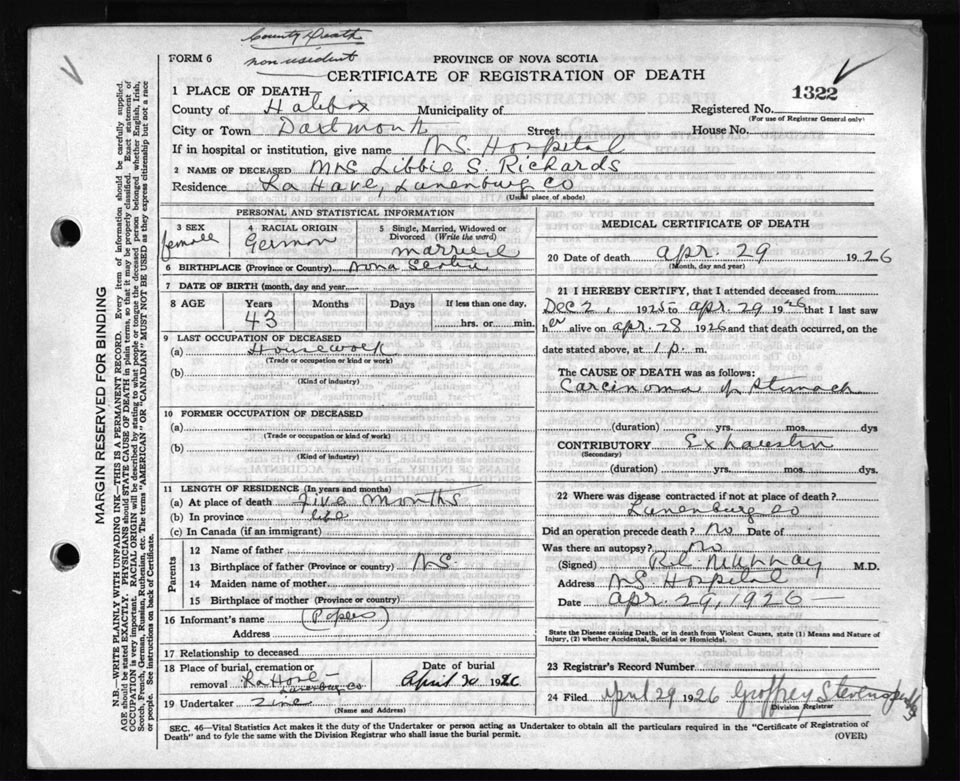 County Death
non resident
FORM 6
PROVINCE OF NOVA SCOTIA
CERTIFICATE OF REGISTRATION OF DEATH
1322
1 PLACE OF DEATH—
County of Halifax Municipality of Registered No.
(For use of Registrar General only)
City or Town Dartmouth Street House No.
If in hospital or institution, give name N.S. Hospital
2 NAME OF DECEASED Mrs Libbie S. Richards
Residence La Have, Lunenburg Co
(Usual place of abode)
PERSONAL AND STATISTICAL INFORMATION
3 SEX female
4 RACIAL ORIGIN German
5 Single, Married, Widowed or Divorced (Write the word) married
6 BIRTHPLACE (Province or Country) Nova Scotia
7 DATE OF BIRTH (month, day and year)
8 AGE Years 43 Months Days If less than one day, hrs. or min.
9 LAST OCCUPATION OF DECEASED
(a) Housework
(Trade or occupation or kind of work)
(b)
(Kind of industry)
10 FORMER OCCUPATION OF DECEASED
(a)
(Trade or occupation or kind of work)
(b)
(Kind of industry)
11 LENGTH OF RESIDENCE (In years and months)
(a) At place of death Five months
(b) In province life
(c) In Canada (if an immigrant)
Parents
12 Name of father
13 Birthplace of father (Province or country) N.S.
14 Maiden name of mother
15 Birthplace of mother (Province or Country)
16 Informant's name (Papers)
Address
17 Relationship to deceased
18 Place of burial, cremation or removal La Have Lunenburg Co
Date of burial April 30 1926
19 Undertaker
(Name and Address)
MEDICAL CERTIFICATE OF DEATH
20 Date of death Apr. 29 1926
(Month, day and year)
21 I HEREBY CERTIFY, that I attended deceased from
Dec 2, 1925 to Apr. 29 1926 that I last saw
her alive on Apr. 28 1926 and that death occurred, on the
date stated above, at 1 p. m.
The CAUSE OF DEATH was as follows:
Carcinoma of Stomach
(duration) yrs. mos. dys
CONTRIBUTORY Exhaustion
(Secondary)
(duration) yrs. mos. dys.
22 Where was disease contracted if not at place of death?
Lunenburg Co
Did an operation precede death? No Date of
Was there an autopsy? No
(Signed) Murray M.D.
Address N.S. Hospital
Date Apr. 29, 1926
State the Disease causing Death, or in death from Violent Causes, state (1) Means and Nature of
Injury, (2) whether Accidental, Suicidal or Homicidal.
23 Registrar's Record Number
24 Filed April 29 1926 Geoffrey Stevens
Division Registrar
SEC. 46—Vital Statistics Act makes it the duty of the Undertaker or person acting as Undertaker to obtain all the particulars required in the "Certificate of Registration of
Death" and to fyle the same with the Division Registrar who shall issue the burial permit.
(OVER)
MARGIN RESERVED FOR BINDING
N.B.—WRITE PLAINLY, WITH UNFADING INK—THIS IS A PERMANENT RECORD. Every item of information should be carefully supplied.
AGE should be stated EXACTLY. PHYSICIANS should STATE CAUSE OF DEATH in plain terms, so that it may be properly classified. Exact statement of
OCCUPATION is very important. RACIAL ORIGIN will be described by stating to what people or tongue the deceased person belonged whether English, Irish,
Scotch, French, German, Russian, Ruthenian, etc. The terms "AMERICAN" or "CANADIAN" MUST NOT BE USED as they express citizenship but not a race
or people. See instructions on back of Certificate.